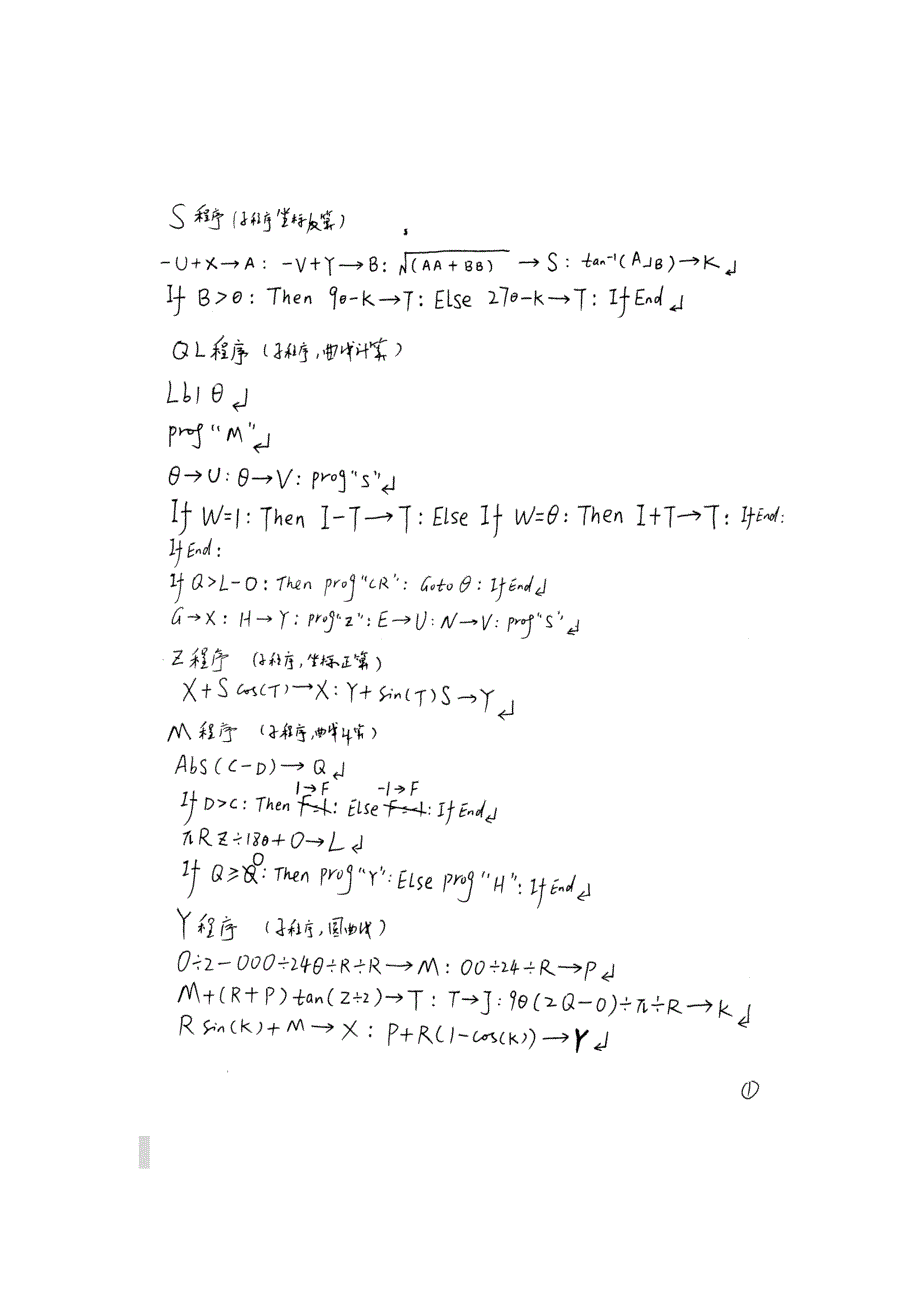 S 程序 (子程序 坐标反算)
-U+X→A: -V+Y→B: √(AA+BB) →S: tan⁻¹(A⌟B)→K↲
If B>θ: Then 9θ-K→T: Else 27θ-K→T: If End↲
QL 程序 (子程序,曲线计算)
Lbl θ↲
prog "M"↲
θ→U: θ→V: prog "S"↲
If W=1: Then I-T→T: Else If W=θ: Then I+T→T: If End:
If End:
If Q>L-O: Then prog "CR": Goto θ: If End↲
G→X: H→Y: prog "Z": E→U: N→V: prog "S"↲
Z 程序 (子程序,坐标正算)
X+S cos(T)→X: Y+sin(T)S→Y↲
M 程序 (子程序,曲线计算)
Abs(C-D)→Q↲
1→F -1→F
If D>C: Then F=1: Else F=-1: If End↲
πRZ÷18θ+O→L↲
If Q≥O: Then prog "Y": Else prog "H": If End↲
Y 程序 (子程序,圆曲线)
O÷2-OOO÷24θ÷R÷R→M: OO÷24÷R→P↲
M+(R+P)tan(Z÷2)→T: T→J: 9θ(2Q-O)÷π÷R→K↲
R sin(K)+M→X: P+R(1-cos(K))→Y↲
①